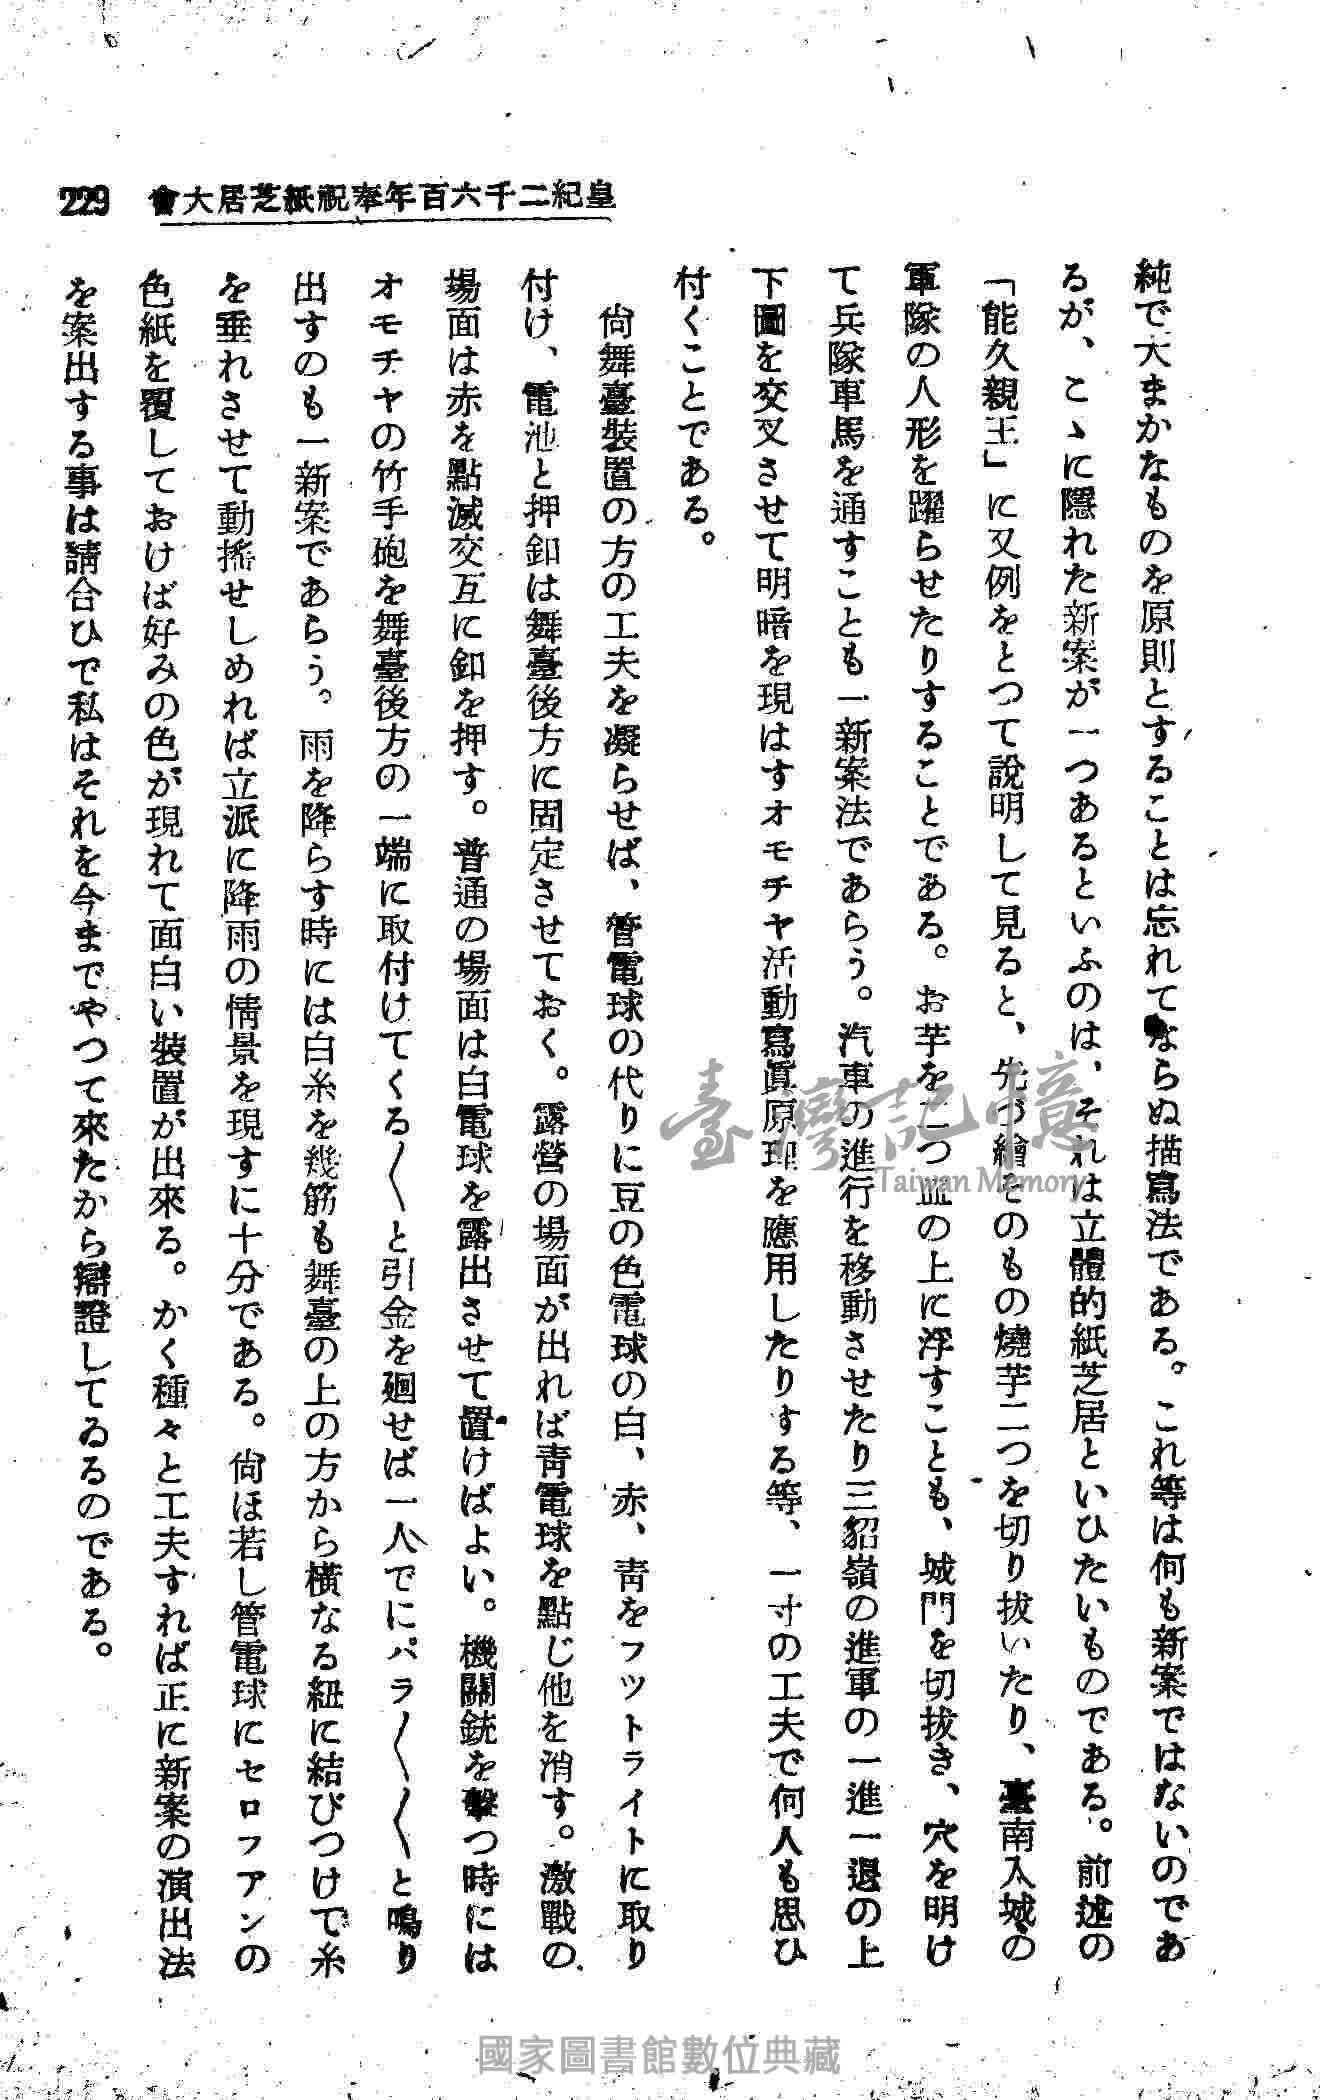 皇紀二千六百年奉祝紙芝居大會
229
純で大まかなものを原則とすることは忘れてならぬ描寫法である。これ等は何も新案ではないのであ
るが、こゝに隱れた新案が一つあるといふのは、それは立體的紙芝居といひたいものである。前述の
「能久親王」に又例をとつて說明して見ると、先づ繪そのもの燒芋二つを切り拔いたり、臺南入城の
軍隊の人形を躍らせたりすることである。お芋を二つ皿の上に浮すことも、城門を切拔き、穴を明け
て兵隊車馬を通すことも一新案法であらう。汽車の進行を移動させたり三貂嶺の進軍の一進一退の上
下圖を交叉させて明暗を現はすオモチヤ活動寫眞原理を應用したりする等、一寸の工夫で何人も思ひ
付くことである。
尙舞臺裝置の方の工夫を凝らせば、管電球の代りに豆の色電球の白、赤、靑をフツトライトに取り
付け、電池と押釦は舞臺後方に固定させておく。露營の場面が出れば靑電球を點じ他を消す。激戰の
場面は赤を點滅交互に釦を押す。普通の場面は白電球を露出させて置けばよい。機關銃を擊つ時には
オモチヤの竹手砲を舞臺後方の一端に取付けてくる〱と引金を廻せば一人でにパラ〱〱と鳴り
出すのも一新案であらう。雨を降らす時には白糸を幾筋も舞臺の上の方から橫なる紐に結びつけて糸
を垂れさせて動搖せしめれば立派に降雨の情景を現すに十分である。尙ほ若し管電球にセロフアンの
色紙を覆しておけば好みの色が現れて面白い裝置が出來る。かく種々と工夫すれば正に新案の演出法
を案出する事は請合ひで私はそれを今までやつて來たから辯證してゐるのである。
臺灣記憶
Taiwan Memory
國家圖書館數位典藏